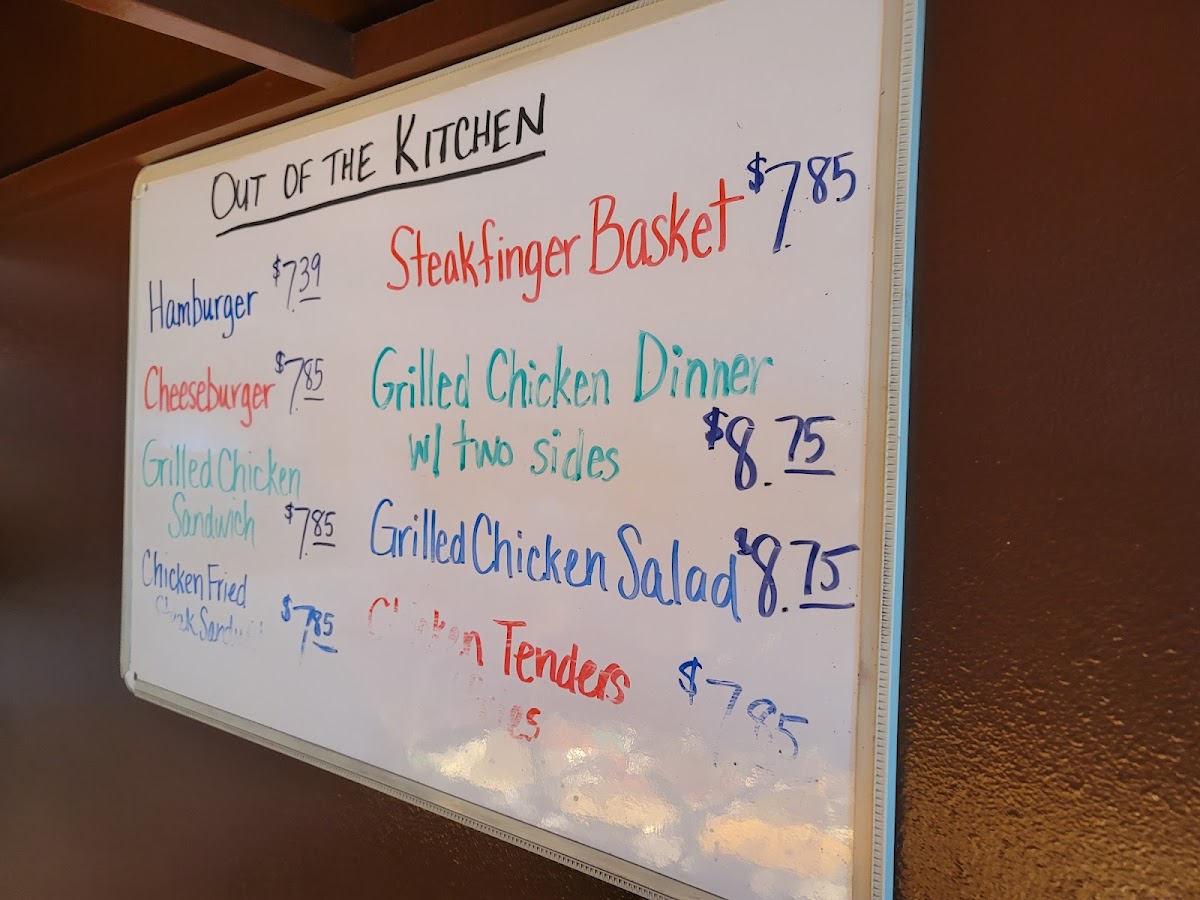 OUT OF THE KITCHEN
Hamburger $7.39
Cheeseburger $7.85
Grilled Chicken
Sandwich $7.85
Chicken Fried
Steak Sandwich $7.85
Steakfinger Basket $7.85
Grilled Chicken Dinner
w/ two sides $8.75
Grilled Chicken Salad $8.75
Chicken Tenders $7.85